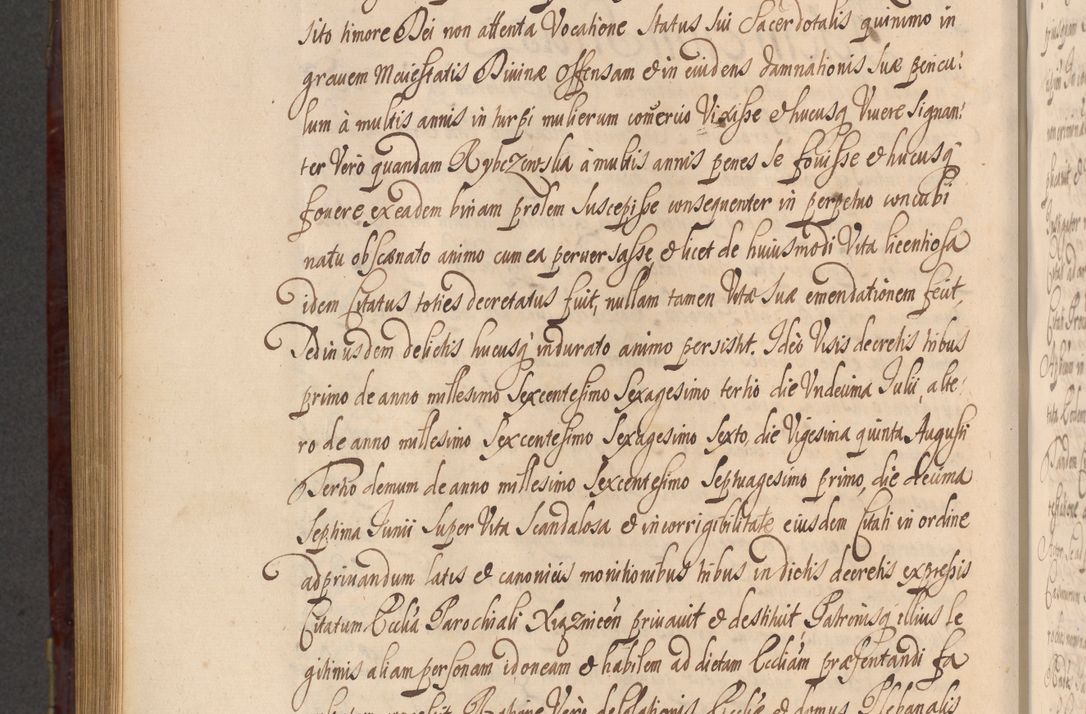 sito timore Dei non attenta Vocatione Status sui Sacerdotalis quinimo in
grauem Maiestatis Diuinæ Offensam et in euidens damnationis suæ pericu:
lum à multis annis in turpi mulierum comercio Vixisse et hucusq Viuere signan:
ter Verò quandam Rybczewska à multis annis penes se fouisse et hucusq
fouere, ex eadem binam prolem suscepisse consequenter in perpetuo concubi
natu obscænato animo cum ea peruersasse, et licet de huiusmodi Vita licentiosa
idem Citatus toties decretatus fuit, nullam tamen Vitæ suæ emendationem fecit,
Sed in usdem delictis hucusq indurato animo persistit. Ideò Visis decretis tribus
primo de anno millesimo Sexcentesimo Sexagesimo tertio die Vndecima Julii, alte:
ro de anno millesimo Sexcentesimo Sexagesimo Sexto, die Vigesima quinta Augusti
Tertio demum de anno millesimo Sexcentesimo Septuagesimo primo, die decima
Septima Junii super Vita Scandalosa et incorrigibilitate eiusdem Citati in ordine
ad priuandum latis et canonicis monitionibus tribus in dictis decretis expressis
Citatum Ecclia Parochiali Xiązniceń priuauit et destituit Patronisq illius le
gitimis aliam personam idoneam et habilem ad dictam Eccliam præsentandi fa
Ratione Verò desolationis Ecclæ et domus Plebanalis